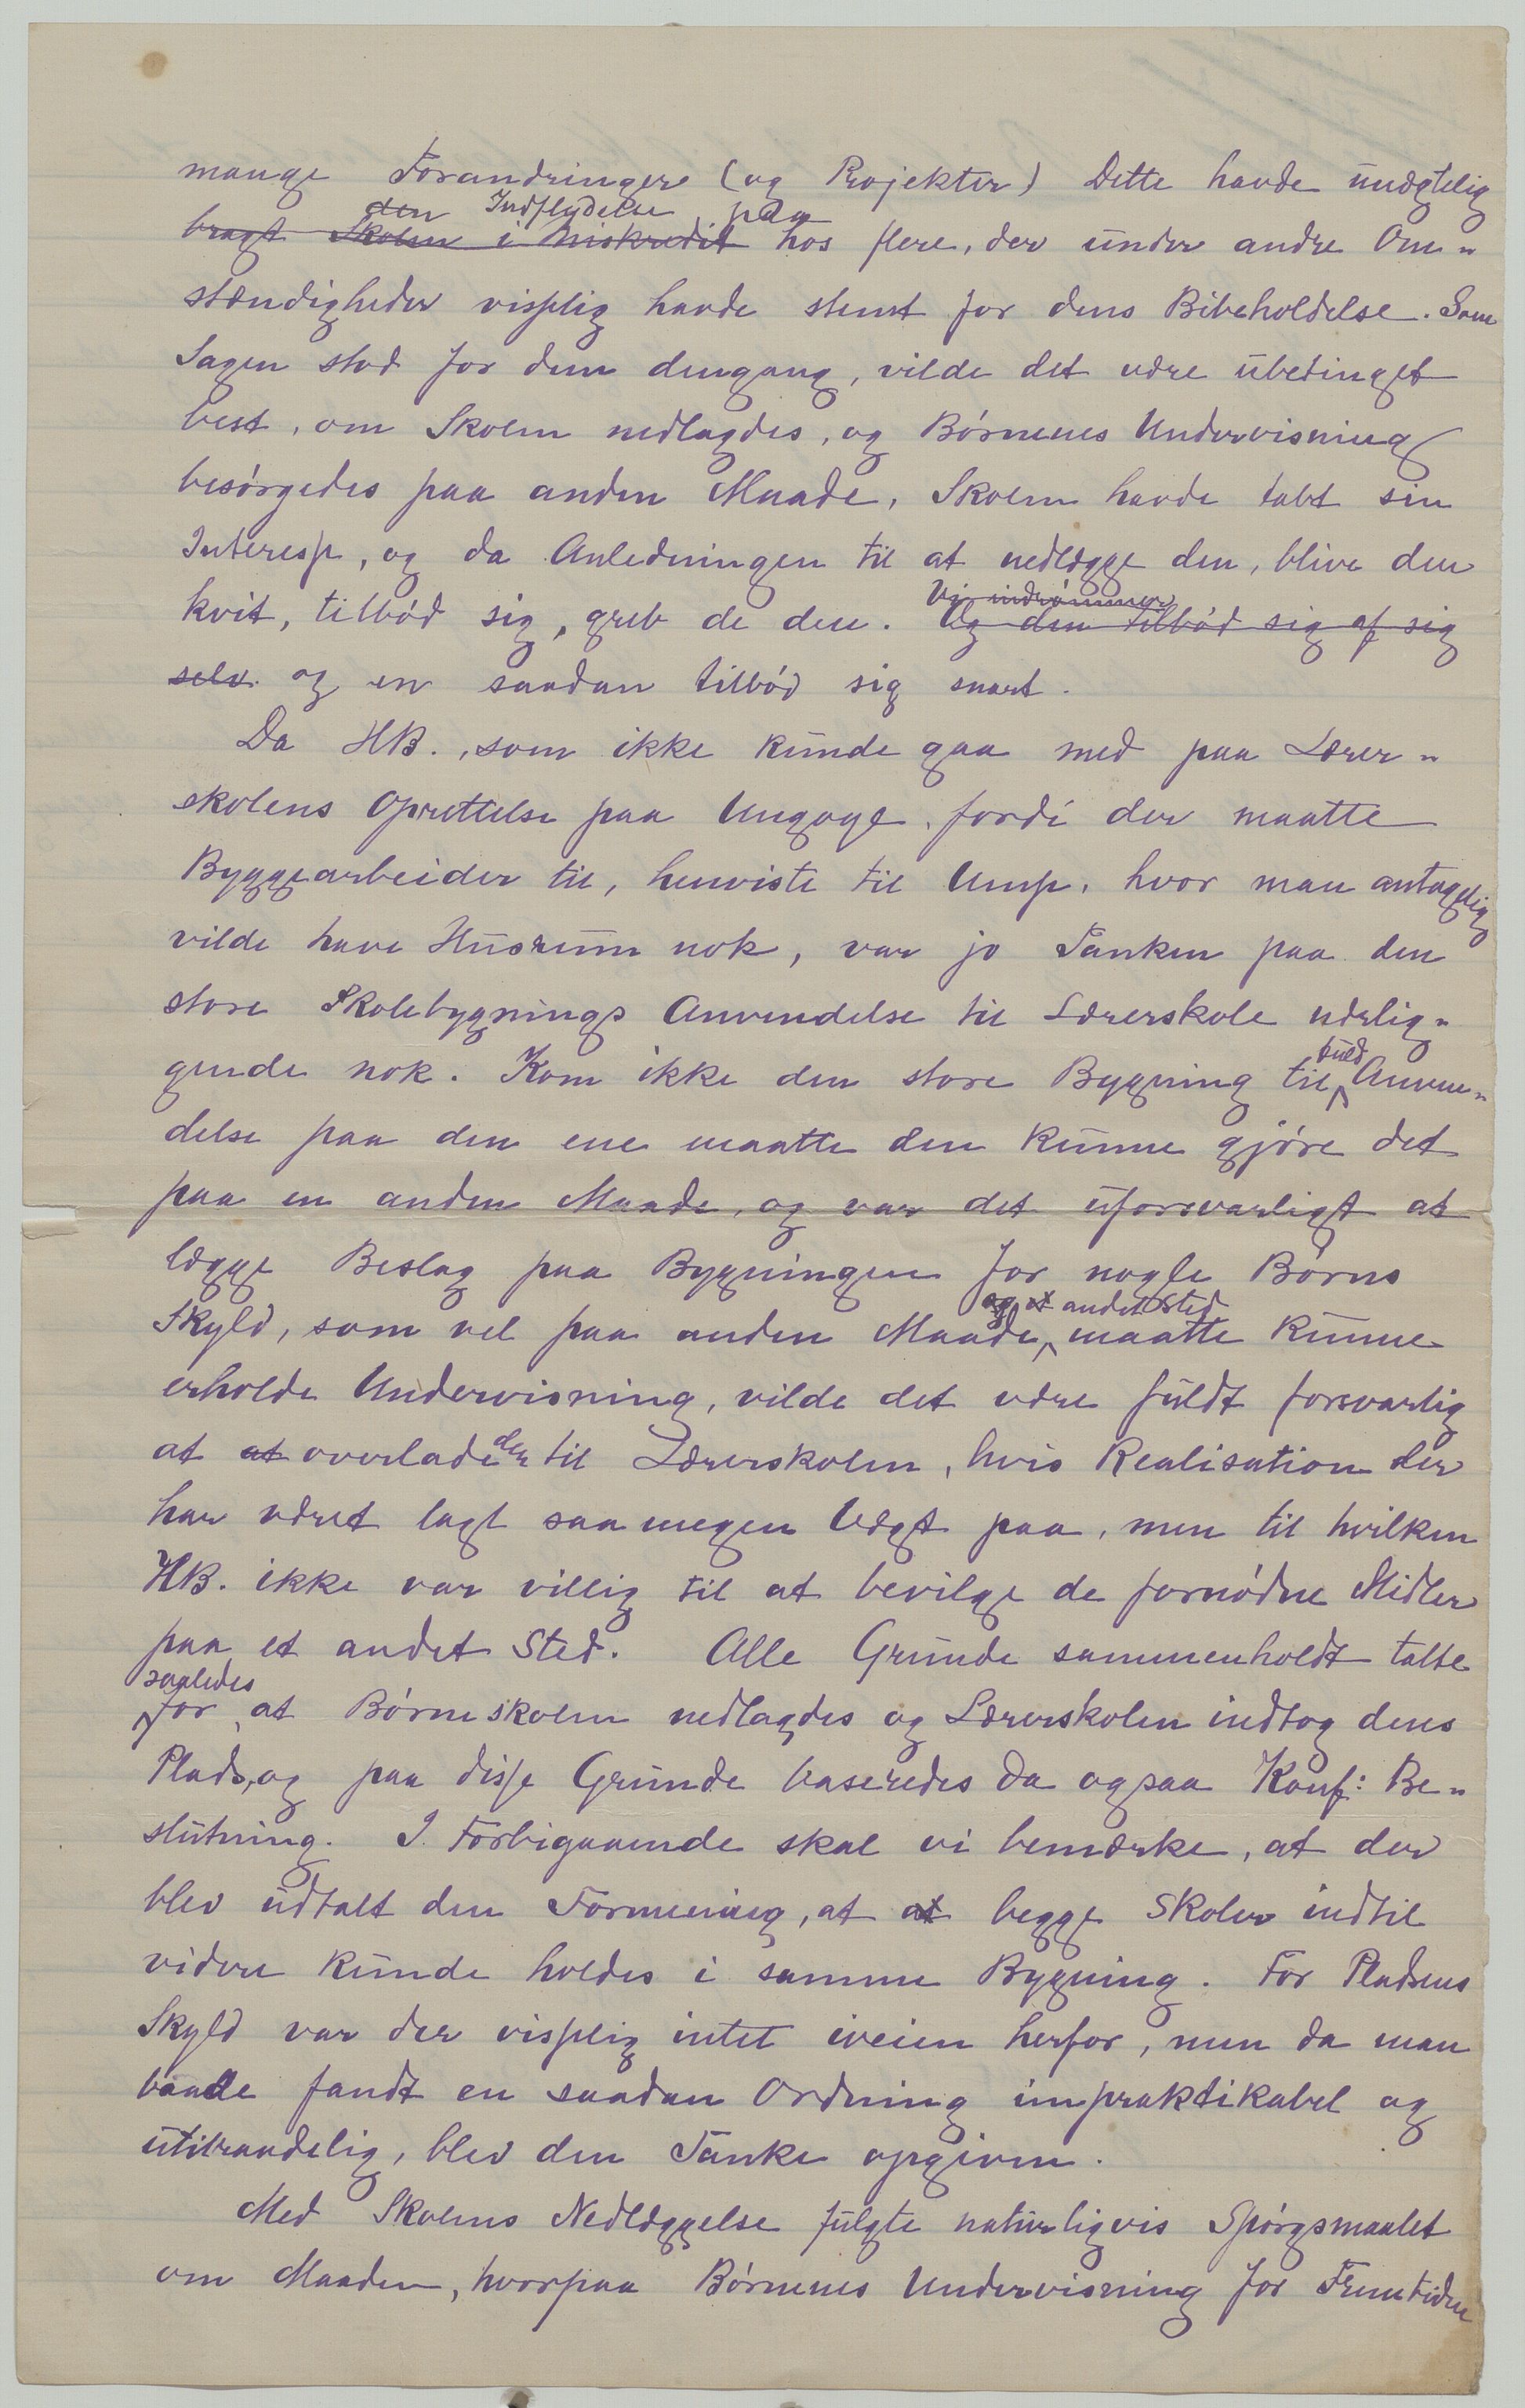 mange Forandringer (og Projekter) Dette havde unægtelig
den Indflydelse paa
bragt Skolen i Miskredit hos flere, der under andre Om-
stændigheder visselig havde stemt for dens Bibeholdelse. Som
Sagen stod for dem dengang, vilde det være ubetinget
best, om Skolen nedlagdes, og Børnenes Undervisning
besørgedes paa anden Maade, Skolen havde tabt sin
Interesse, og da Anledningen til at nedlægge den, blive den
Vi indrømmer
kvit, tilbød sig, greb de den. Og den tilbød sig af sig
selv. og en saadan tilbød sig snart.
Da HB., som ikke kunde gaa med paa Lærer-
skolens Oprettelse paa Ungoye, fordi der maatte
Byggearbeider til, henviste til Ump. hvor man antagelig
vilde have Husrum nok, var jo Tanken paa den
store Skolebygnings Anvendelse til Lærerskole nærlig-
fuld
gende nok. Kom ikke den store Bygning til Anven-
delse paa den ene maatte den kunne gjøre det
paa en anden Maade, og var det uforsvarligt at
lægge Beslag paa Bygningen for nogle Børns
og et andet Sted
Skyld, som vel paa anden Maade, maatte kunne
erholde Undervisning, vilde det være fuldt forsvarlig
at at overlade den til Lærerskolen, hvis Realisation der
har været lagt saa megen Vægt paa, men til hvilken
HB. ikke var villig til at bevilge de fornødne Midler
paa et andet Sted. Alle Grunde sammenholdt talte
saaledes
for, at Børneskolen nedlagdes og Lærerskolen indtog dens
Plads, og paa disse Grunde baseredes da ogsaa Konf: Be-
slutning. I Forbigaaende skal vi bemærke, at der
blev udtalt den Formening, at at begge Skoler indtil
videre kunde holdes i samme Bygning. For Pladsens
Skyld var der visselig intet iveien herfor, men da man
baade fandt en saadan Ordning impraktikabel og
utilraadelig, blev den Tanke opgiven.
Med Skolens Nedlæggelse fulgte naturligvis Spørgsmaalet
om Maaden, hvorpaa Børnenes Undervisning for Fremtiden